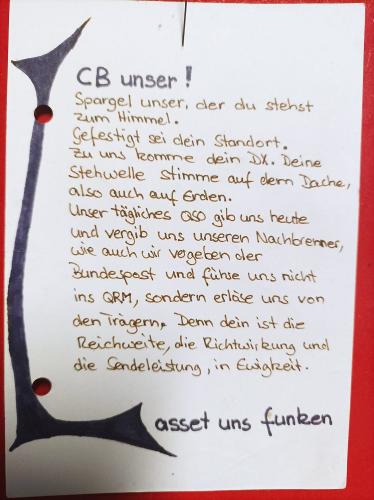 CB unser!
Spargel unser, der du stehst
zum Himmel.
Gefestigt sei dein Standort.
Zu uns komme dein DX. Deine
Stehwelle stimme auf dem Dache,
also auch auf Erden.
Unser tägliches QSO gib uns heute
und vergib uns unseren Nachbrenner,
wie auch wir vegeben der
Bundespost und führe uns nicht
ins QRM, sondern erlöse uns von
den Trägern. Denn dein ist die
Reichweite, die Richtwirkung und
die Sendeleistung, in Ewigkeit.
Lasset uns funken